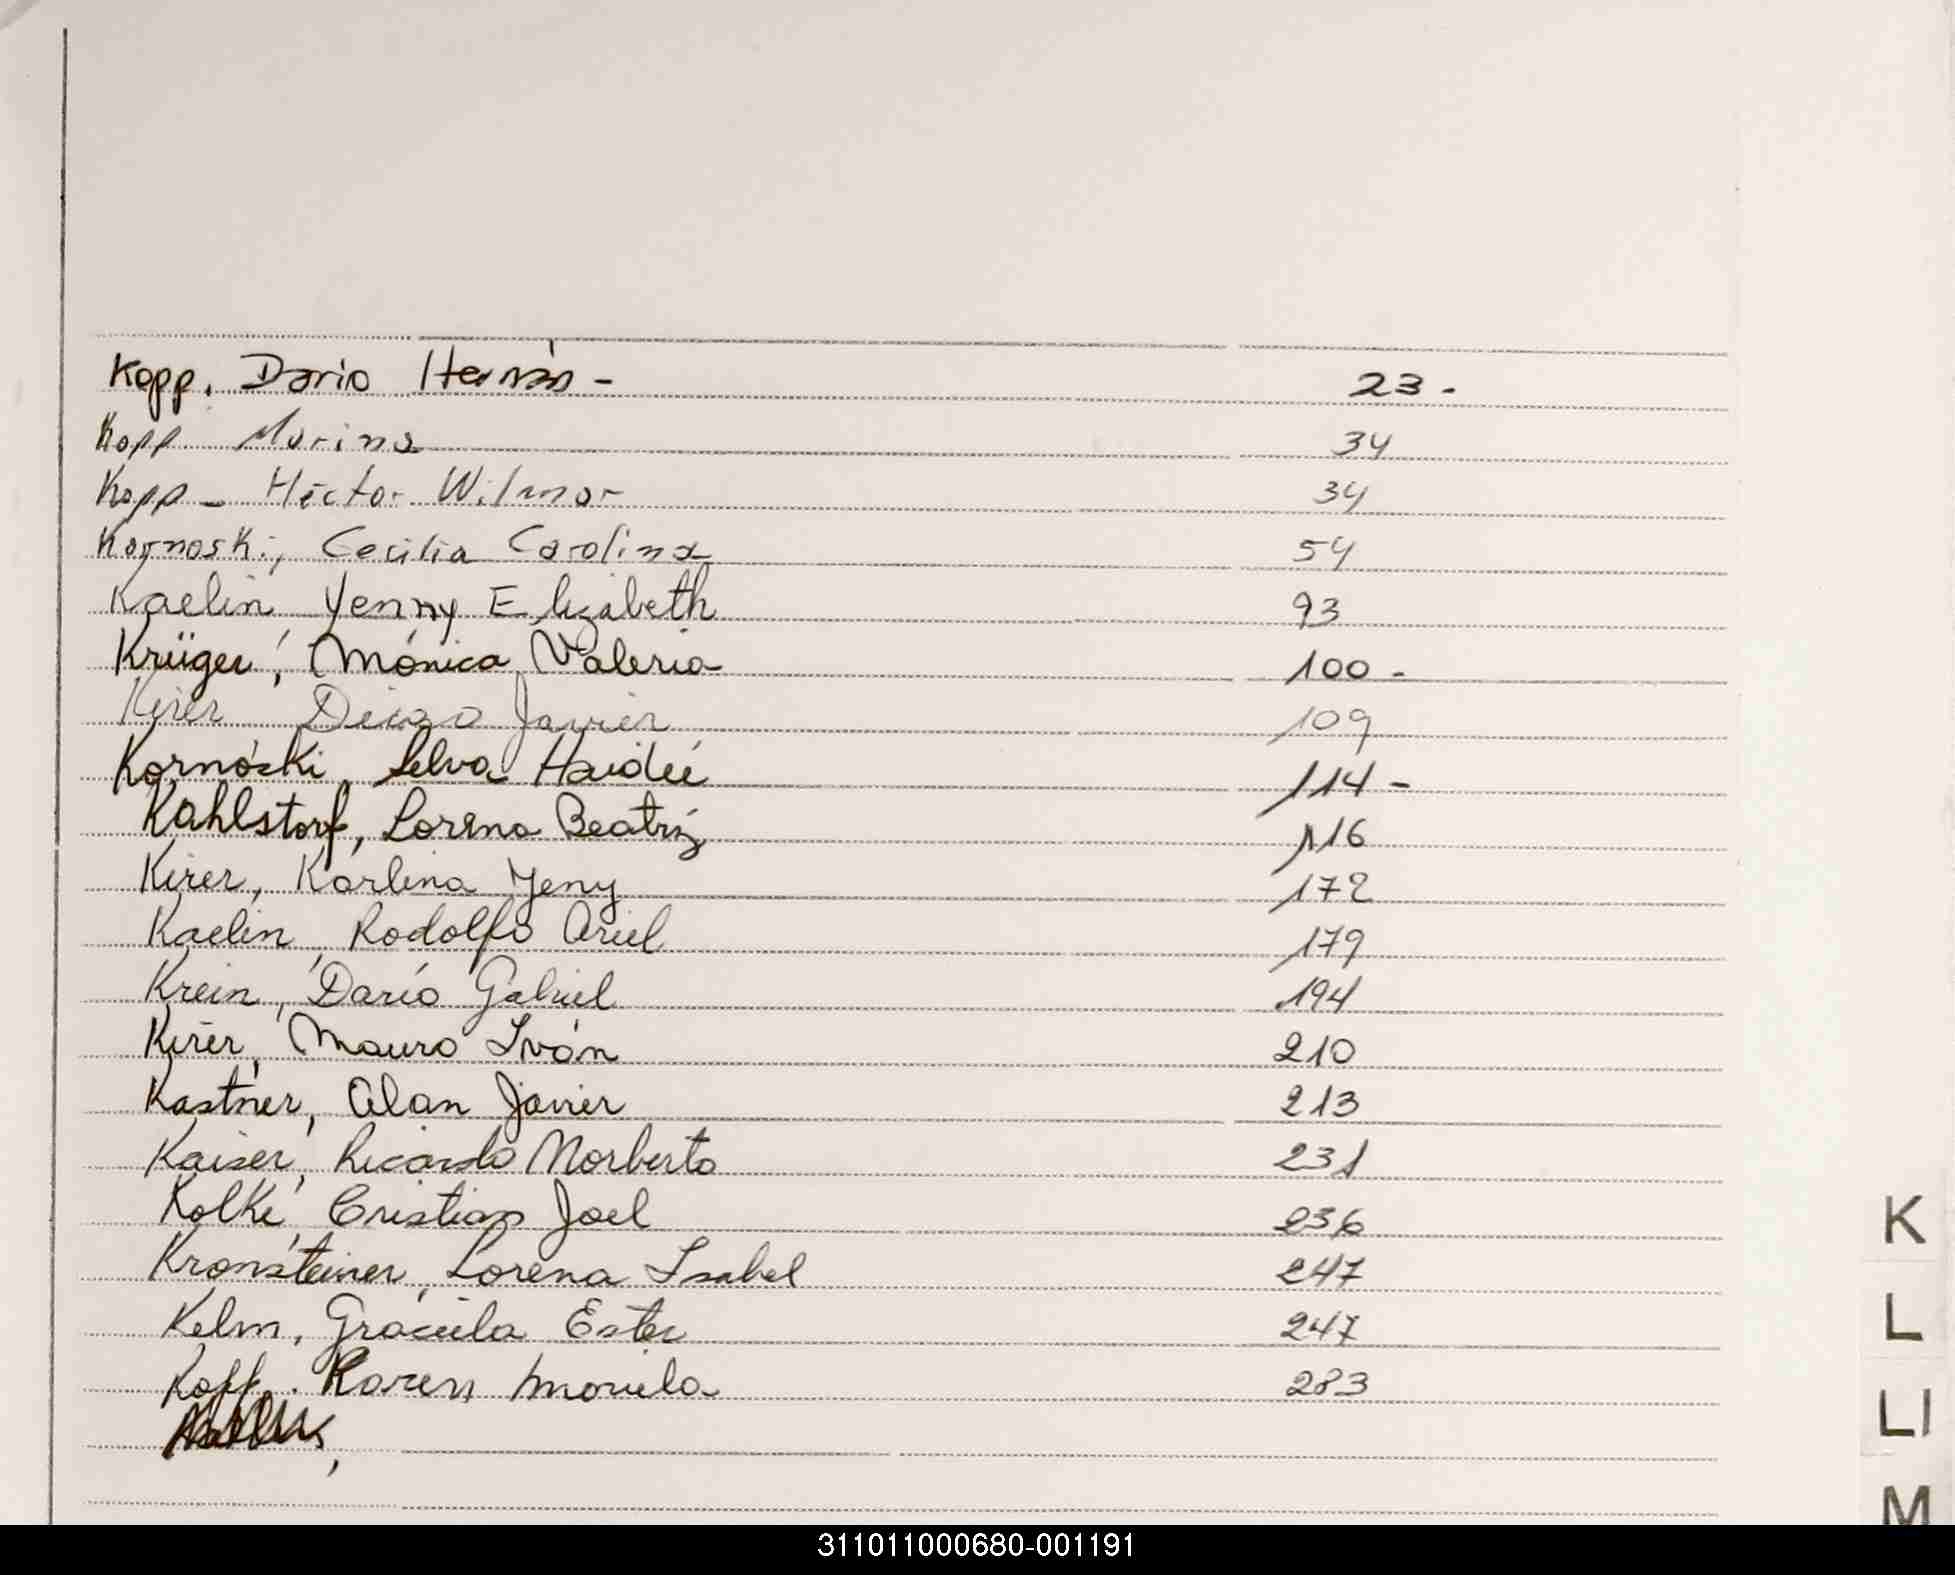 Kopp, Dario Hernán - 23 -
Kopp Marina 34
Kopp - Héctor Wilmar 34
Kornoski, Cecilia Carolina 54
Kaelin Yenny Elizabeth 93
Krüger, Mónica Valeria 100 -
Kirer Diego Javier 109
Kornoski, Selva Haideé 114 -
Kahlstorf, Lorena Beatriz 116
Kirer, Karlina Yeny 172
Kaelin, Rodolfo Ariel 179
Krein, Darío Gabriel 194
Kirer, Mauro Iván 210
Kastner, Alan Javier 213
Kaiser, Ricardo Norberto 231
Kolke, Cristian Joel 236
Kronsteiner, Lorena Isabel 247
Kelm, Graciela Ester 247
Kopp, Karen Mariela 283
K
L
Ll
M
311011000680-001191